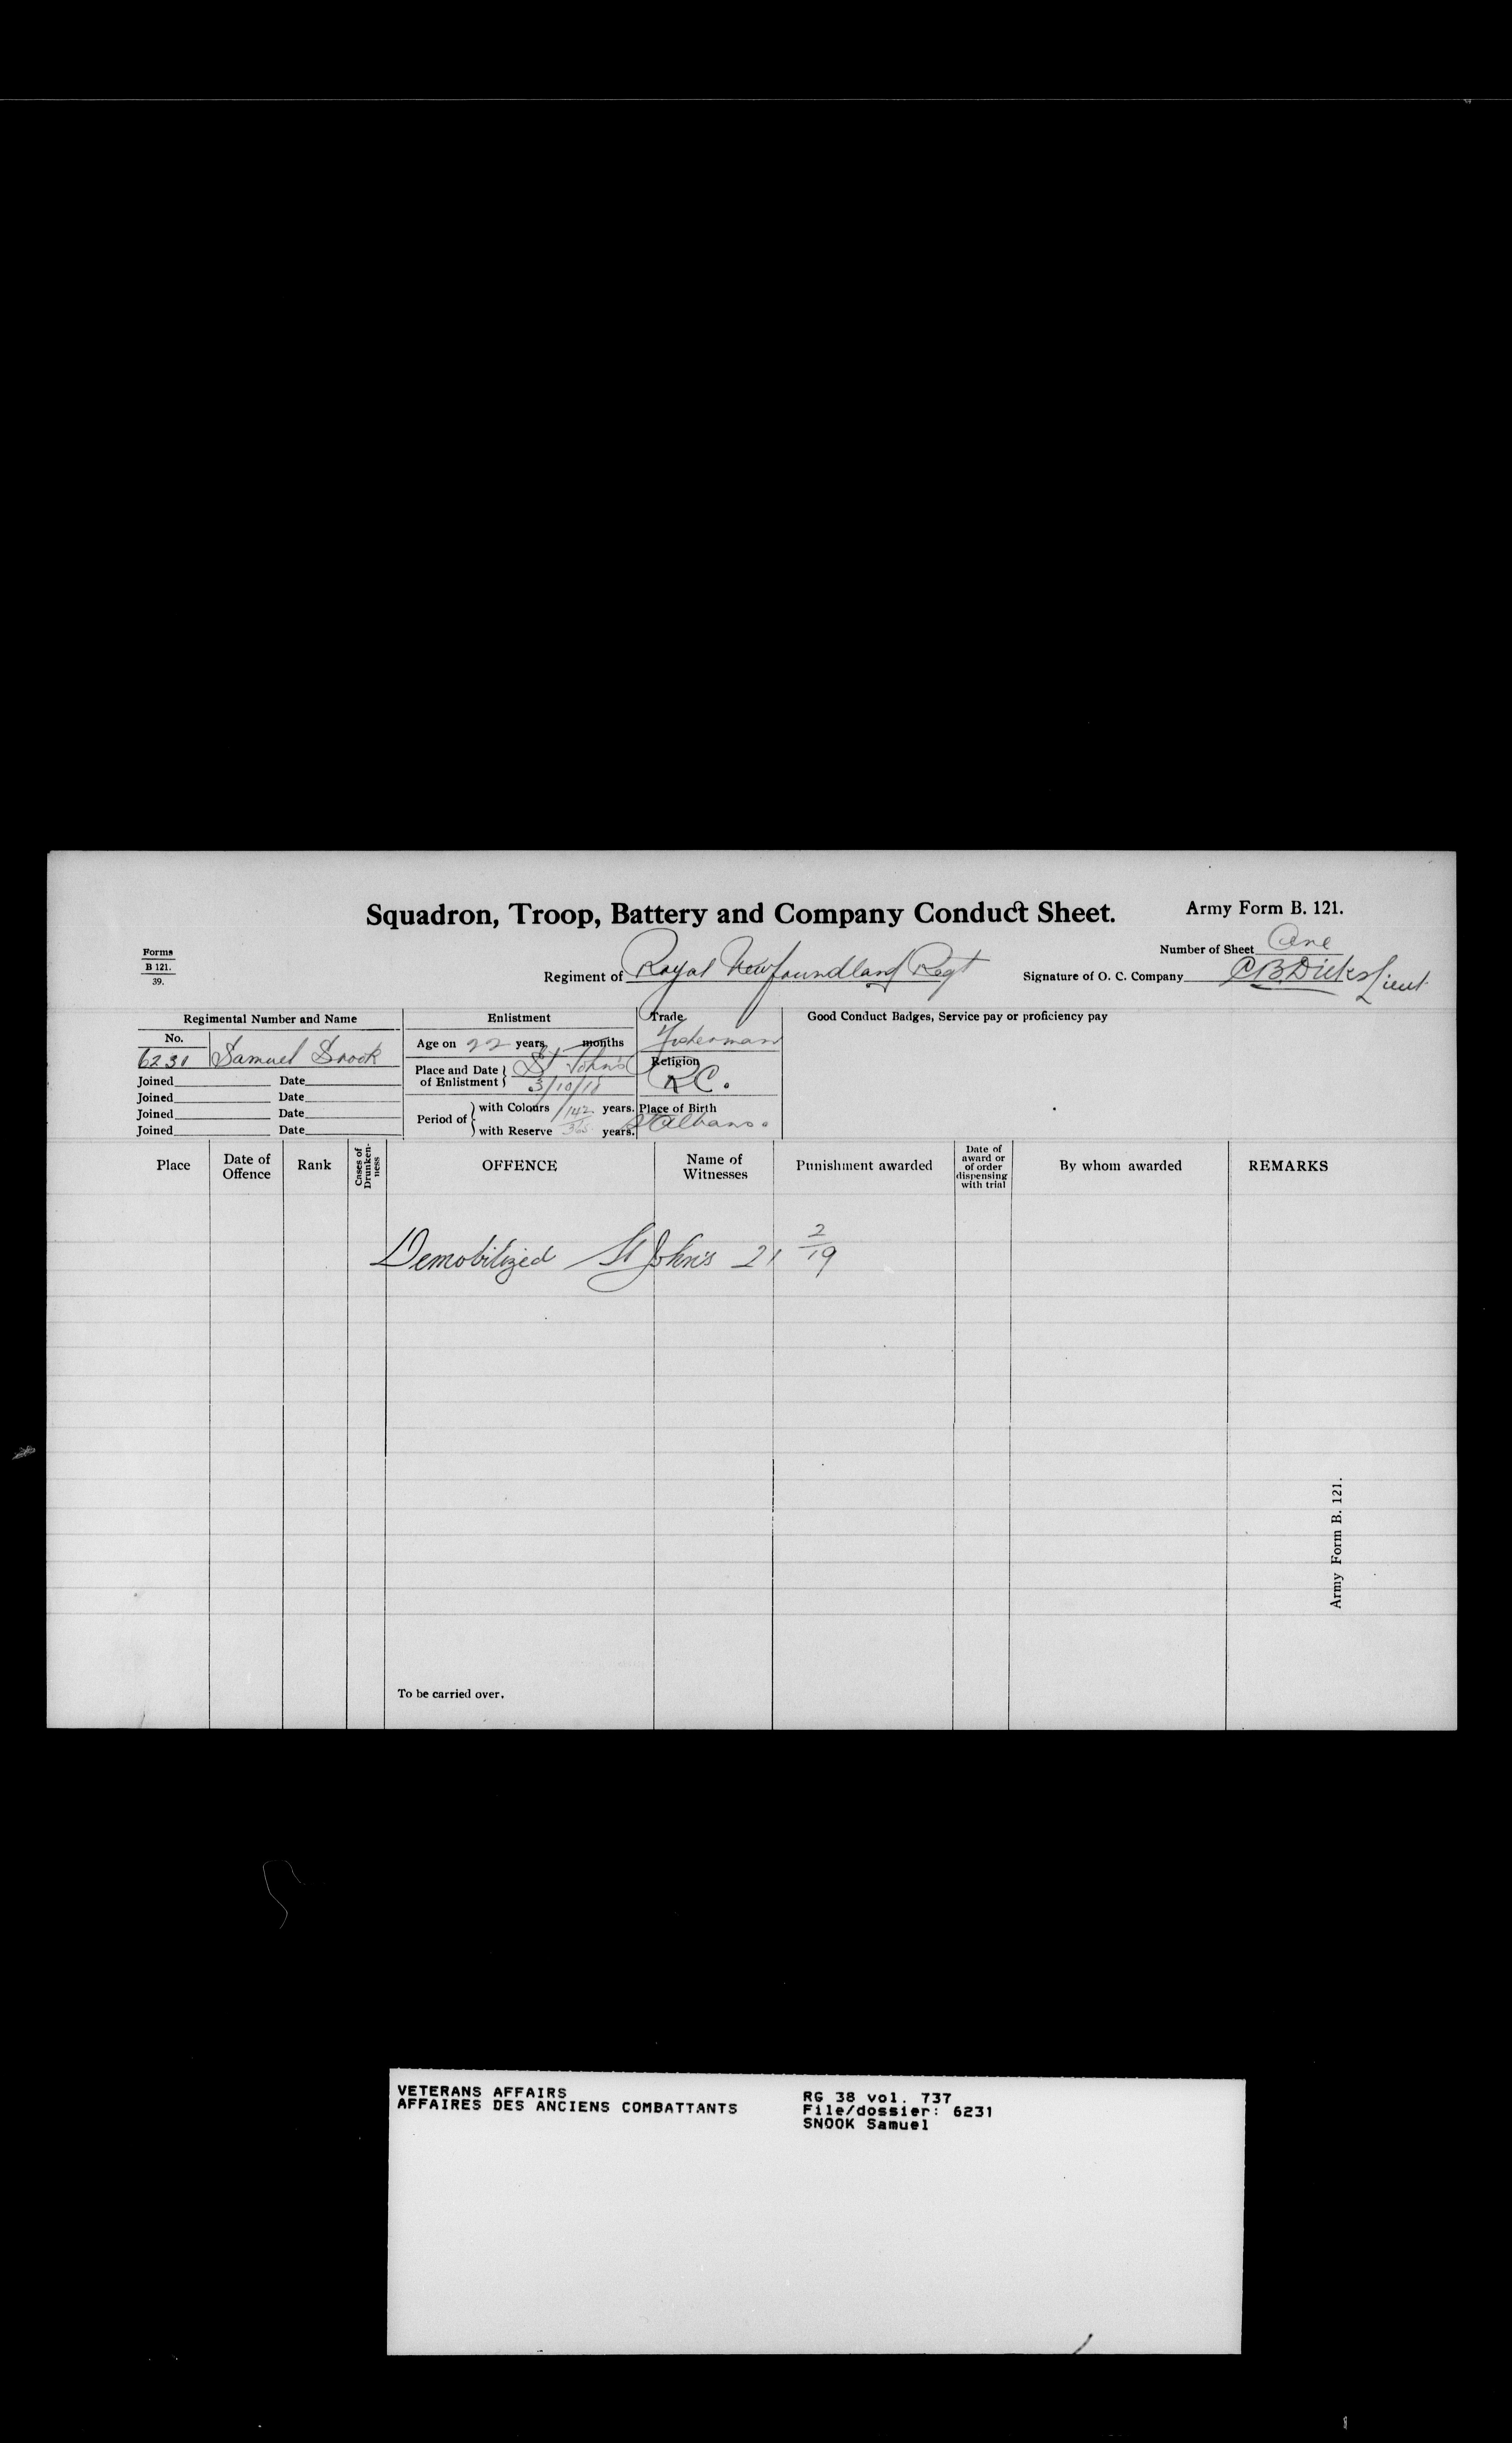 Squadron, Troop, Battery and Company Conduct Sheet.
Army Form B. 121.
Forms
B 121.
39.
Number of Sheet One
Regiment of Royal Newfoundland Regt
Signature of O. C. Company C B Dicks Lieut
Regimental Number and Name
No.
6231 Samuel Snook
Joined Date
Joined Date
Joined Date
Joined Date
Enlistment
Age on 22 years months
Place and Date of Enlistment St Johns
3/10/18
Period of with Colours 142 years.
with Reserve 365 years.
Trade
Fisherman
Religion
R.C.
Place of Birth
St Albans.
Good Conduct Badges, Service pay or proficiency pay
Place
Date of Offence
Rank
Cases of Drunken-ness
OFFENCE
Name of Witnesses
Punishment awarded
Date of award or of order dispensing with trial
By whom awarded
REMARKS
Demobilized St John's 21 2/19
Army Form B. 121.
To be carried over.
VETERANS AFFAIRS
AFFAIRES DES ANCIENS COMBATTANTS
RG 38 vol. 737
File/dossier: 6231
SNOOK Samuel